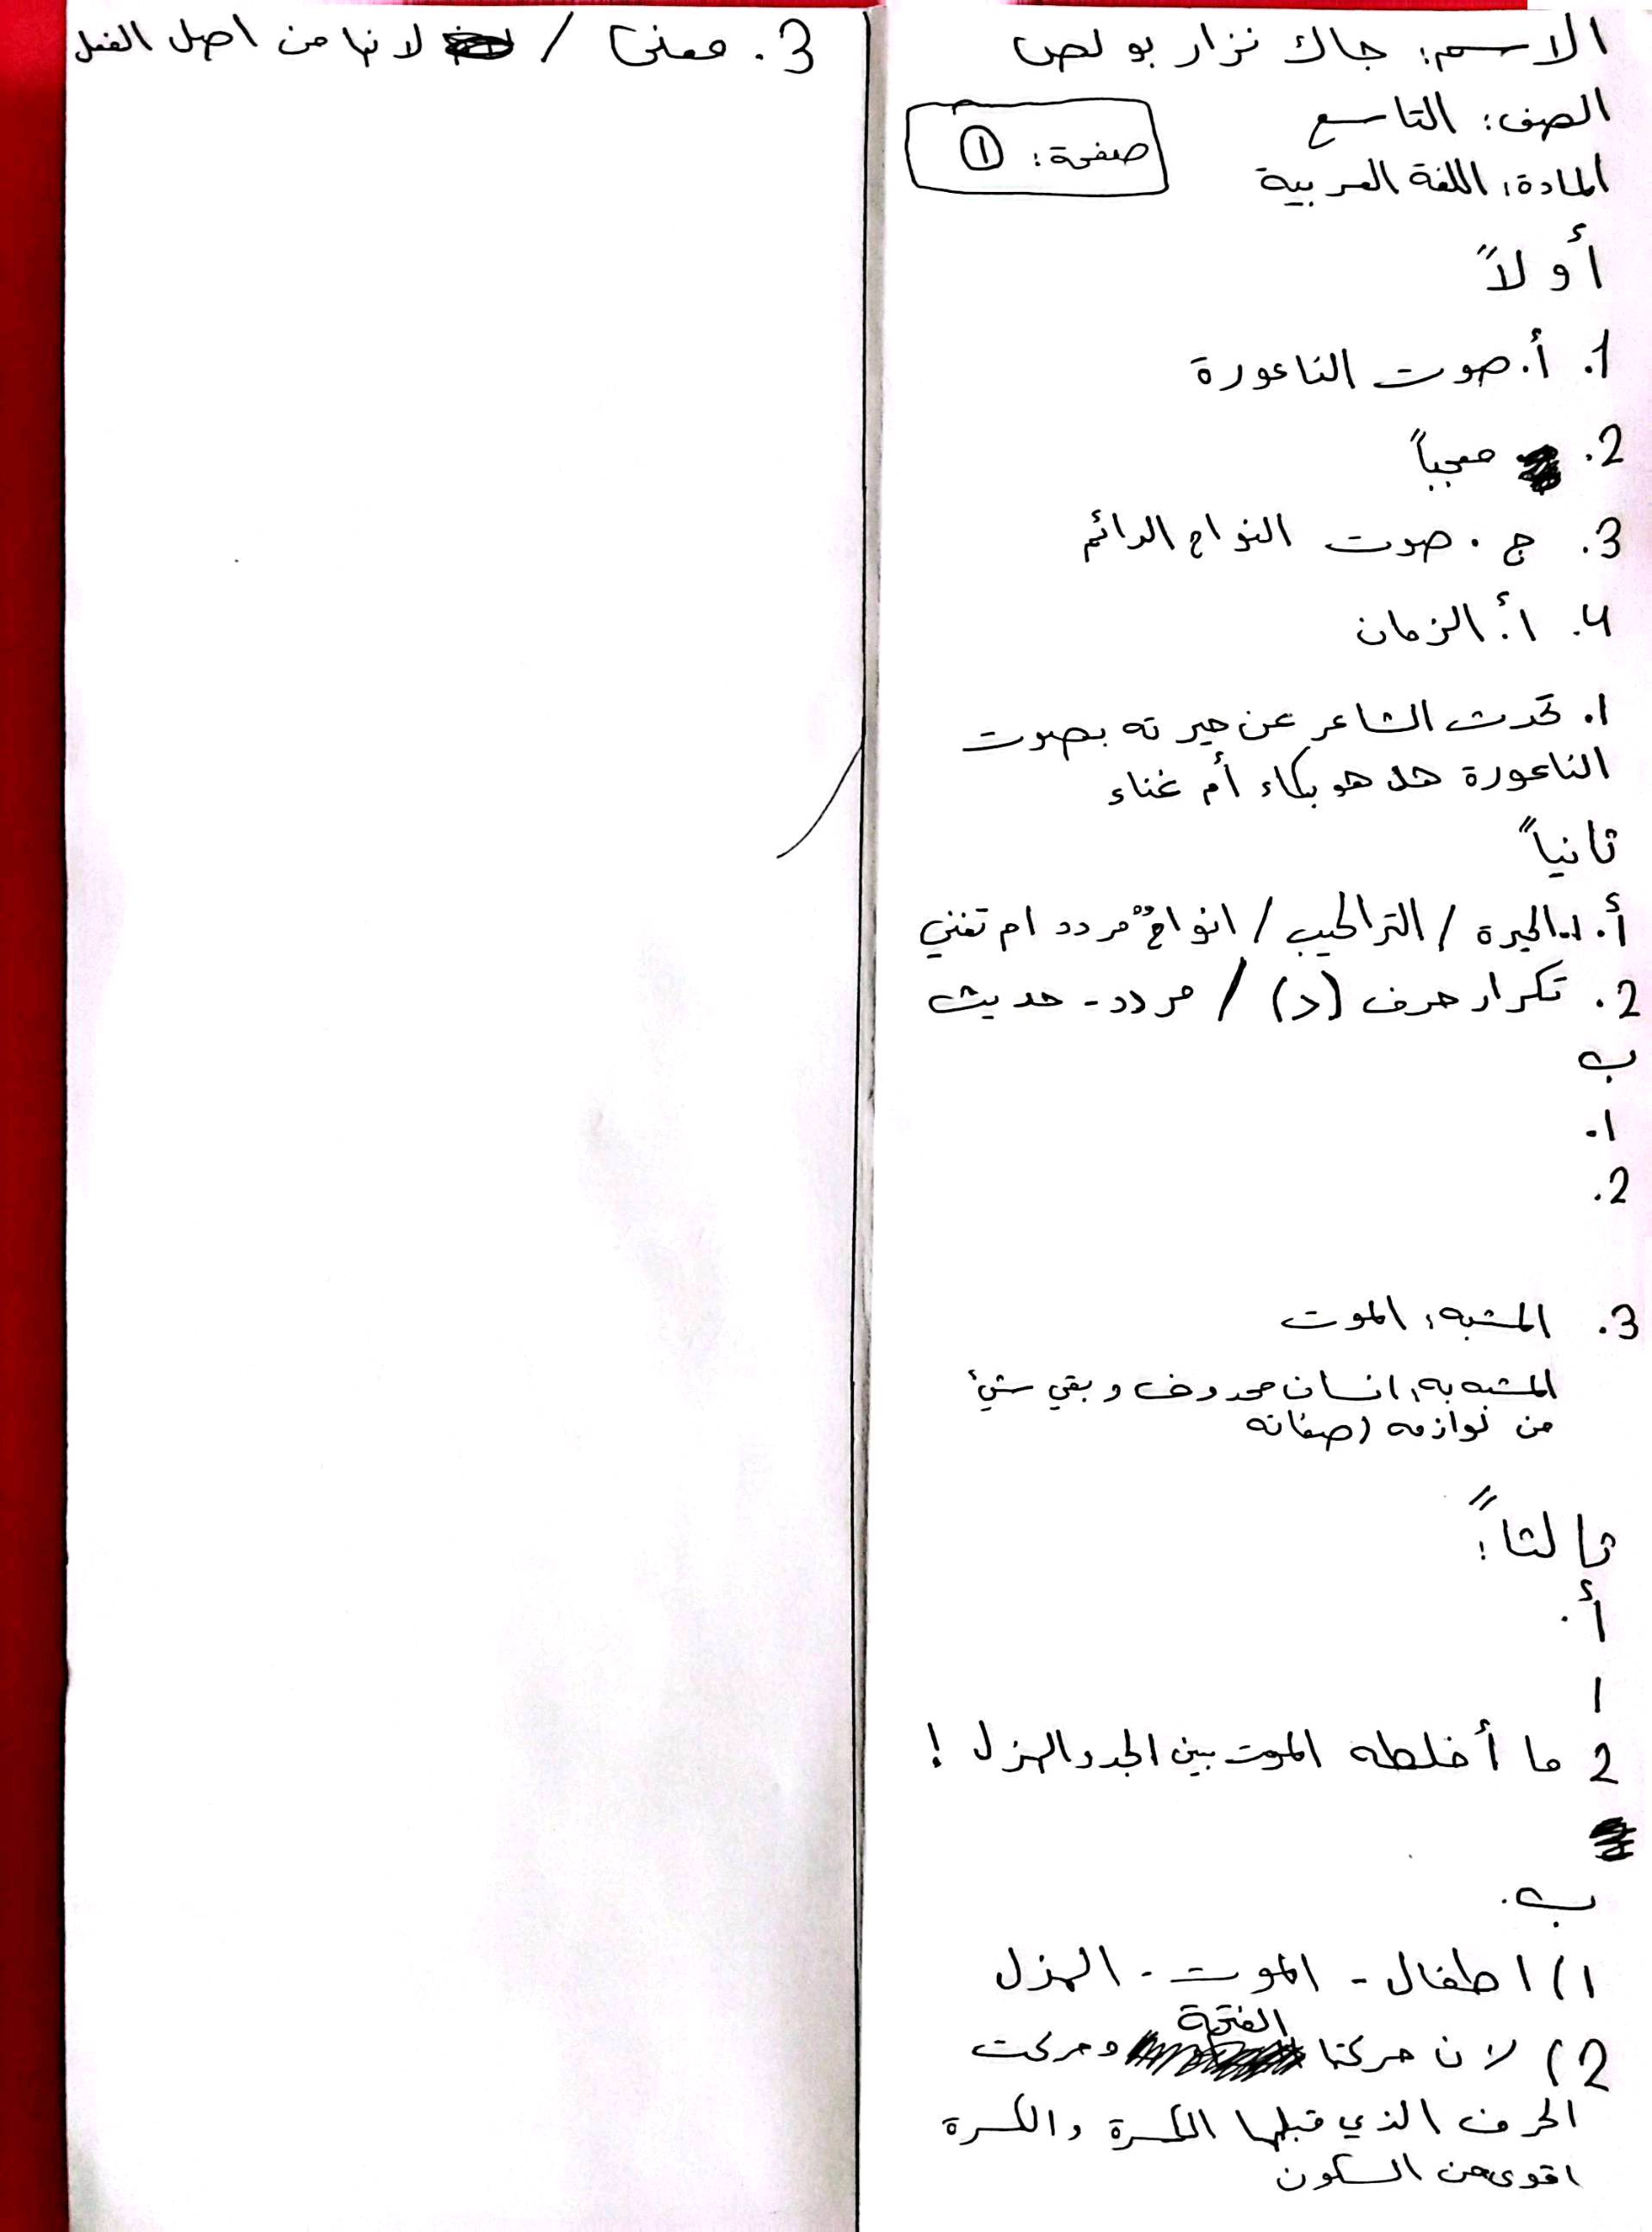 الاسم: جاك نزار بولص
الصف: التاسع
صفحة: ①
المادة: اللغة العربية
أولاً
1. أ. صوت الناعورة
2. معجباً
3. ج. صوت النواح الدائم
4. أ. الزمان
١. تحدث الشاعر عن حيرته بصوت
الناعورة هل هو بكاء أم غناء
ثانياً
أ. ١. الحيرة / التراكيب / انواحٌ مردد ام تغني
2. تكرار حرف (د) / مردد - حديث
ب
١.
2.
3. المشبه: الموت
المشبه به: انسان محذوف وبقي شيء
من لوازمه (صفاته
ثالثاً:
أ.
١
2 ما أخلطه الموت بين الجد والهزل !
ب.
١) اطفال - الموت - الهزل
2) لان حركتها الفتحة وحركت
الحرف الذي قبلها الكسرة والكسرة
اقوى من السكون
3. معنى / لانها من اصل الفعل